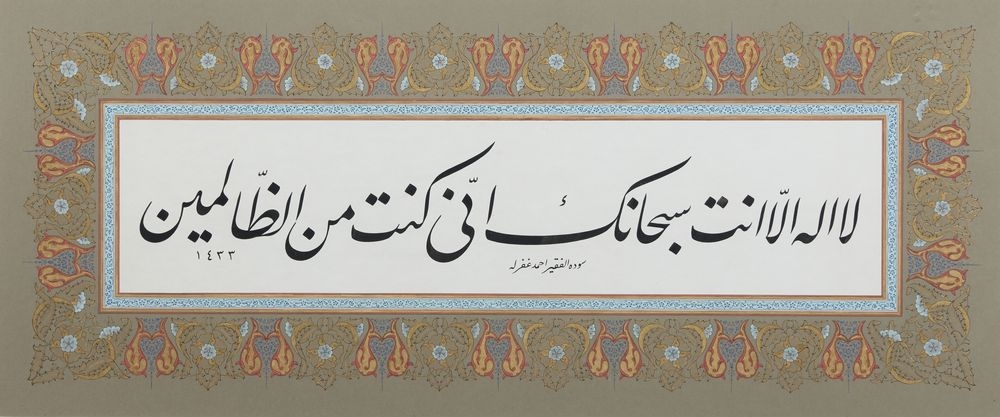 لا اله الّا انت سبحانك انّى كنت من الظّالمين
سوده الفقير احمد غفرله
١٤٣٣